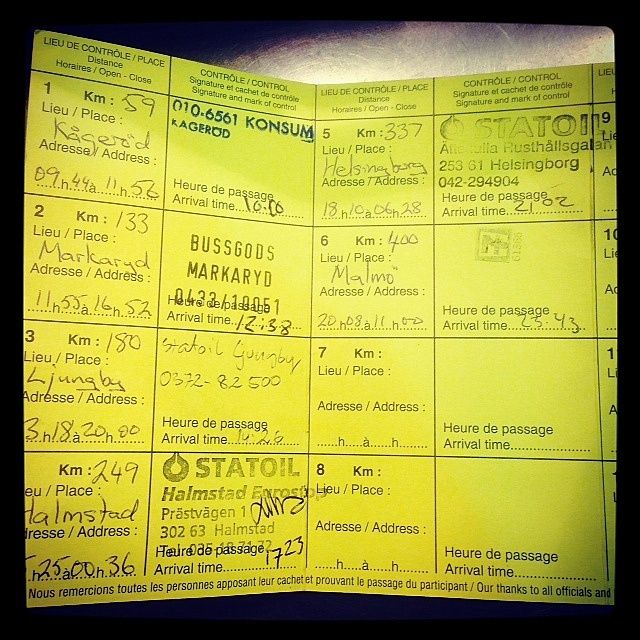 LIEU DE CONTRÔLE / PLACE
Distance
Horaires / Open - Close
CONTRÔLE / CONTROL
Signature et cachet de contrôle
Signature and mark of control
1 Km : 59
Lieu / Place :
Kågeröd
Adresse / Address :
09h44à 11h56
010-6561 KONSUM
KÅGERÖD
Heure de passage
Arrival time
2 Km : 133
Lieu / Place :
Markaryd
Adresse / Address :
11h55à 16h52
BUSSGODS
MARKARYD
0433/10051
Heure de passage
Arrival time 12:38
3 Km : 180
Lieu / Place :
Ljungby
Adresse / Address :
3h18à 20h00
Statoil Ljungby
0372-82 500
Heure de passage
Arrival time 14:28
Km : 249
eu / Place :
Halmstad
resse / Address :
h25à00h36
STATOIL
Halmstad Eurostop
Prästvägen 1
302 63 Halmstad
Heure de passage
Arrival time 17 23
LIEU DE CONTRÔLE / PLACE
Distance
Horaires / Open - Close
CONTRÔLE / CONTROL
Signature et cachet de contrôle
Signature and mark of control
5 Km : 337
Lieu / Place :
Helsingborg
Adresse / Address :
18h10à06h28
STATOIL
Rusthållsgatan
253 61 Helsingborg
042-294904
Heure de passage
Arrival time 21:02
6 Km : 400
Lieu / Place :
Malmö
Adresse / Address :
20h08à11h00
Heure de passage
Arrival time 23:43
7 Km :
Lieu / Place :
Adresse / Address :
......h....à......h......
Heure de passage
Arrival time
8 Km :
Lieu / Place :
Adresse / Address :
......h....à......h......
Heure de passage
Arrival time
LIEU
9
Lie
Ad
10
Lie
Ad
1
Li
A
Nous remercions toutes les personnes apposant leur cachet et prouvant le passage du participant / Our thanks to all officials and